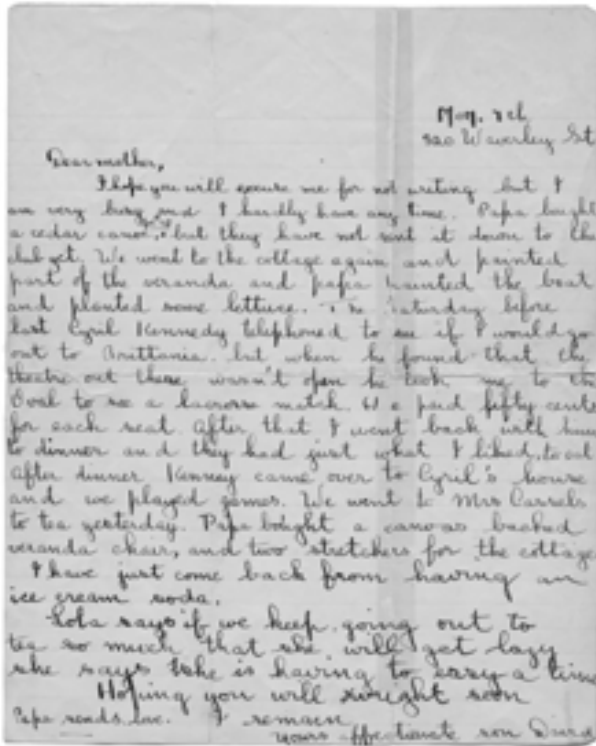 Mon. 8th
320 Waverley St
Dear mother,
I hope you will excuse me for not writing but I
am very busy and I hardly have any time. Papa bought
a cedar canoe, but they have not sent it down to the
club yet. We went to the cottage again and painted
part of the veranda and papa painted the boat
and planted some lettuce. The Saturday before
last Cyril Kennedy telephoned to see if I would go
out to Brittania. but when he found that the
theatre out there wasn't open he took me to the
Oval to see a lacrosse match. We paid fifty cents
for each seat. After that I went back with him
to dinner and they had just what I liked, to eat
after dinner Kenney came over to Cyril's house
and we played games. We went to Mrs Cassels
to tea yesterday. Papa bought a canvas backed
veranda chair, and two stretchers for the cottage
I have just come back from having an
ice cream soda.
Lola says if we keep going out to
tea so much that she will get lazy
she says she is having to easy a time
Hoping you will wright soon
Papa sends love. I remain
yours affectionate son